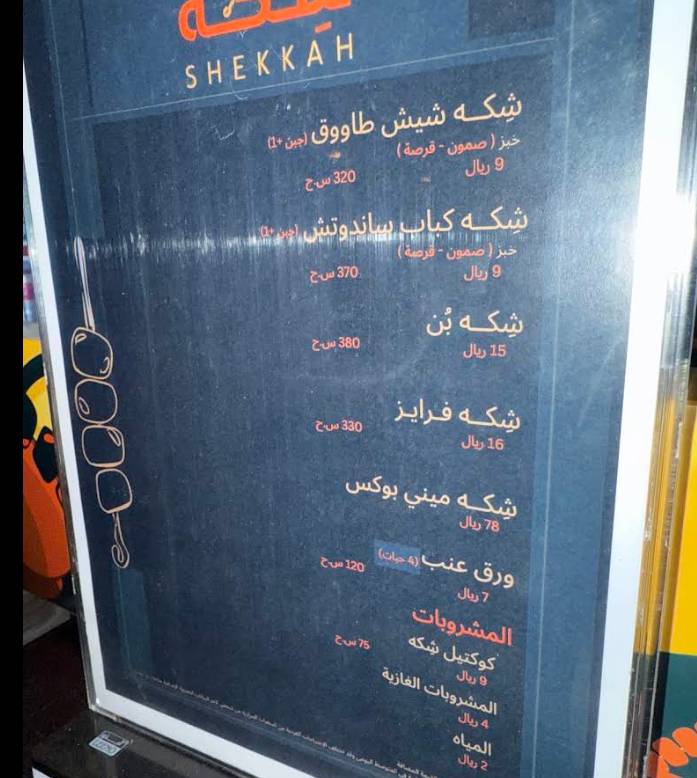 شكه
SHEKKAH
شِكـه شيش طاووق (جبن +1)
خبز ( صمون - قرصة )
9 ريال 320 س.ح
شِكـه كباب ساندوتش (جبن +1)
خبز ( صمون - قرصة )
9 ريال 370 س.ح
شِكـه بُن
15 ريال 380 س.ح
شِكـه فرايز
16 ريال 330 س.ح
شِكـه ميني بوكس
78 ريال
ورق عنب (4 حبات)
7 ريال 120 س.ح
المشروبات
كوكتيل شِكه
9 ريال 75 س.ح
المشروبات الغازية
4 ريال
المياه
2 ريال